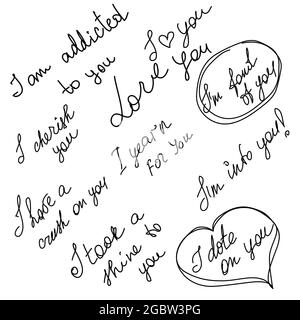 I am addicted
to you
I ♡ you
Love you
I'm fond
of you
I cherish
you
I yearn
For you
I'm into you!
I have a
crush on you
I took a
shine to
you
I dote
on you
alamy
Image ID: 2GBW3PG
www.alamy.com